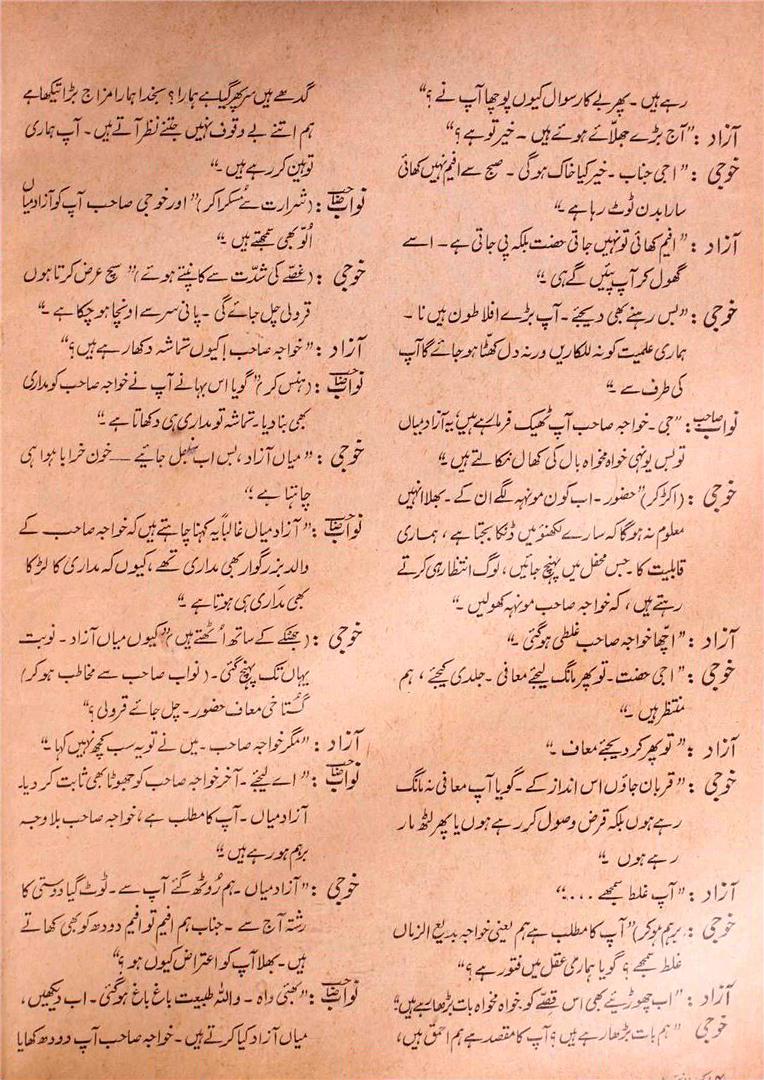 رہے ہیں ۔ پھر بے کار سوال کیوں پوچھا آپ نے ؟“
آزاد : ”آج بڑے جھلّائے ہوئے ہیں ۔ خیر تو ہے ؟“
خوجی : ”اجی جناب ۔ خیر کیا خاک ہوگی ۔ صبح سے افیم نہیں کھائی
سارا بدن ٹوٹ رہا ہے ۔“
آزاد : ”افیم کھائی تو نہیں جاتی حضت بلکہ پی جاتی ہے ۔ اسے
گھول کر آپ پئیں گے ہی ۔“
خوجی : ”بس رہنے بھی دیجئے ۔ آپ بڑے افلاطون ہیں نا ۔
ہماری علمیت کو نہ للکاریں ورنہ دل کھٹّا ہو جائے گا آپ
کی طرف سے ۔“
نواب صاحب : ”جی ۔ خواجہ صاحب آپ ٹھیک فرما رہے ہیں، یہ آزاد میاں
تو بس یونہی خواہ مخواہ بال کی کھال نکالتے ہیں ۔“
خوجی : (اکڑ کر) ”حضور ۔ اب کون مونہہ لگے ان کے ۔ بھلا انہیں
معلوم نہ ہوگا کہ سارے لکھنؤ میں ڈنکا بجتا ہے ، ہماری
قابلیت کا ۔ جس محفل میں پہنچ جائیں ، لوگ انتظار ہی کرتے
رہتے ہیں ، کہ خواجہ صاحب مونہہ کھولیں ۔“
آزاد : ”اچھا خواجہ صاحب غلطی ہوگئی ۔“
خوجی : ”اجی حضت ۔ تو پھر مانگ لیجئے معافی ۔ جلدی کیجئے ، ہم
منتظر ہیں ۔“
آزاد : ”تو پھر کر دیجئے معاف ۔“
خوجی : ”قربان جاؤں اس انداز کے ۔ گویا آپ معافی نہ مانگ
رہے ہوں بلکہ قرض وصول کر رہے ہوں یا پھر لٹھ مار
رہے ہوں ۔“
آزاد : ”آپ غلط سمجھے ....“
خوجی : (برہم ہو کر) ”آپ کا مطلب ہے ہم یعنی خواجہ بدیع الزماں
غلط سمجھے ؟ گویا ہماری عقل میں فتور ہے ؟“
آزاد : ”اب چھوڑیئے بھی اس قصّے کو خواہ مخواہ بات بڑھا رہے ہیں“
خوجی ”ہم بات بڑھا رہے ہیں ؟ آپ کا مقصد ہے ہم احمق ہیں،
گدھے ہیں سر پھر گیا ہے ہمارا ؟ بخدا ہمارا مزاج بڑا تیکھا ہے
ہم اتنے بے وقوف نہیں جتنے نظر آتے ہیں ۔ آپ ہماری
توہین کر رہے ہیں ۔“
نواب صاحب : (شرارت سے مسکرا کر) ”اور خوجی صاحب آپ کو آزاد میاں
اُلّو بھی سمجھتے ہیں ۔“
خوجی : (غصّے کی شدّت سے کانپتے ہوئے) ”سچ عرض کرتا ہوں
قرولی چل جائے گی ۔ پانی سر سے اونچا ہو چکا ہے ۔“
آزاد : ”خواجہ صاحب ! کیوں تماشہ دکھا رہے ہیں ؟“
نواب صاحب : (ہنس کر) ”گویا اس بہانے آپ نے خواجہ صاحب کو مداری
بھی بنا دیا ۔ تماشہ تو مداری ہی دکھاتا ہے ۔“
خوجی : ”میاں آزاد ، بس اب سنبھل جائیے — خون خرابا ہوا ہی
چاہتا ہے ؛“
نواب صاحب : ”آزاد میاں غالباً یہ کہنا چاہتے ہیں کہ خواجہ صاحب کے
والد بزرگوار بھی مداری تھے ، کیوں کہ مداری کا لڑکا
بھی مداری ہی ہوتا ہے ۔“
خوجی : (جھٹکے کے ساتھ اُٹھتے ہیں) ”کیوں میاں آزاد ۔ نوبت
یہاں تک پہنچ گئی ۔ (نواب صاحب سے مخاطب ہو کر)
گستاخی معاف حضور ۔ چل جائے قرولی ؟“
آزاد : ”مگر خواجہ صاحب ۔ میں نے تو یہ سب کچھ نہیں کہا ۔“
نواب صاحب : ”اے لیجئے ۔ آخر خواجہ صاحب کو جھوٹا بھی ثابت کر دیا ۔
آزاد میاں ۔ آپ کا مطلب ہے ، خواجہ صاحب بلاوجہ
برہم ہو رہے ہیں ۔“
خوجی : ”آزاد میاں ۔ ہم رُوٹھ گئے آپ سے ۔ ٹوٹ گیا دوستی کا
رشتہ آج سے ۔ جناب ہم افیم تو افیم دودھ کو بھی کھاتے
ہیں ۔ بھلا آپ کو اعتراض کیوں ہو ؟“
نواب صاحب : ”بھئی واہ ۔ واللہ طبیعت باغ باغ ہوگئی ۔ اب دیکھیں ،
میاں آزاد کیا کرتے ہیں ۔ خواجہ صاحب آپ دودھ کھایا